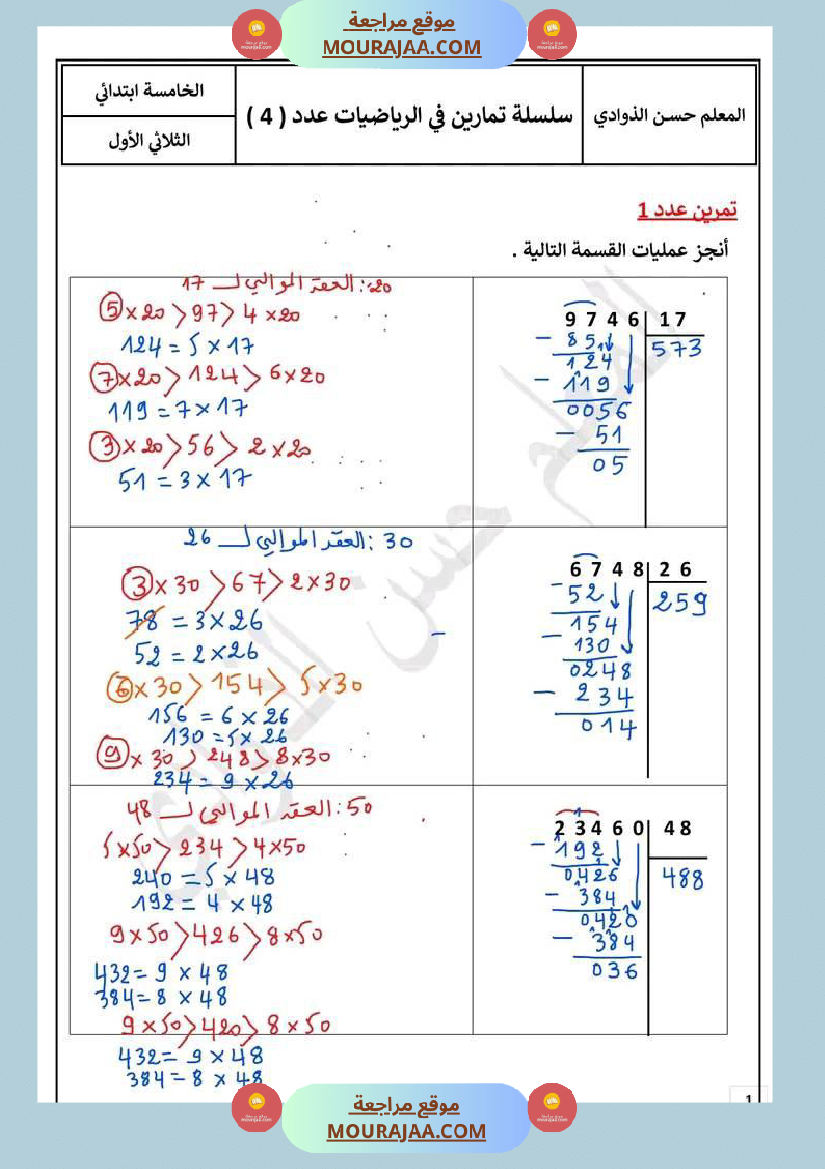 موقع مراجعة
MOURAJAA.COM
المعلم حسن الذوادي
سلسلة تمارين في الرياضيات عدد ( 4 )
الخامسة ابتدائي
الثلاثي الأول
تمرين عدد 1
أنجز عمليات القسمة التالية .
9 7 4 6 | 1 7
- 8 5
573
1 2 4
- 1 1 9
0056
- 51
05
20: العقد الموالي لـ 17
5 x 20 > 97 > 4 x 20
124 = 5 x 17
7 x 20 > 124 > 6 x 20
119 = 7 x 17
3 x 20 > 56 > 2 x 20
51 = 3 x 17
6 7 4 8 | 2 6
- 52
259
154
- 130
0248
- 234
014
30: العقد الموالي لـ 26
3 x 30 > 67 > 2 x 30
78 = 3 x 26
52 = 2 x 26
6 x 30 > 154 > 5 x 30
156 = 6 x 26
130 = 5 x 26
9 x 30 > 248 > 8 x 30
234 = 9 x 26
2 3 4 6 0 | 4 8
- 192
488
0426
- 384
0420
- 384
036
50: العقد الموالي لـ 48
5 x 50 > 234 > 4 x 50
240 = 5 x 48
192 = 4 x 48
9 x 50 > 426 > 8 x 50
432 = 9 x 48
384 = 8 x 48
9 x 50 > 420 > 8 x 50
432 = 9 x 48
384 = 8 x 48
المعلم حسن الذوادي
1
موقع مراجعة
MOURAJAA.COM